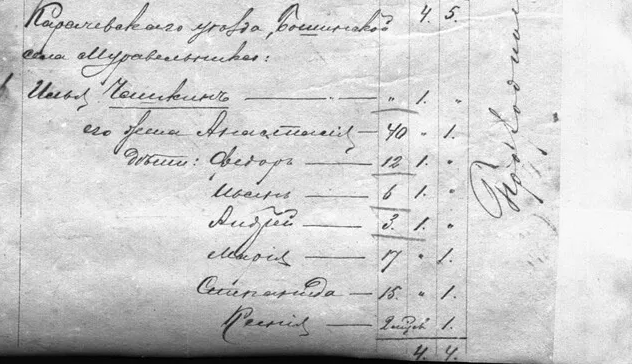 4. 5.
Карачевскаго уѣзда, Бошинской
села Муравельника:
Илья Чашкинъ — „ 1. „
его жена Анастасія — 40 „ 1.
дѣти: Федоръ — 12 1. „
— 6 1. „
Андрей — 3. 1. „
Марія — 17 „ 1.
Степанида — 15. „ 1.
Ксенія — 1.
4. 4.